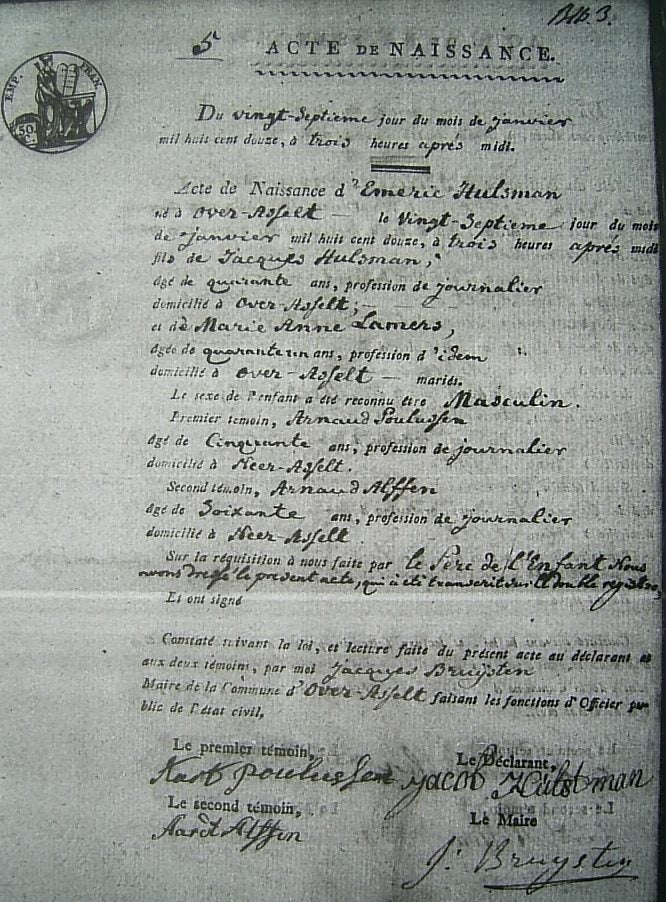 Blb. 3.
5 ACTE DE NAISSANCE.
EMP. FRAN.
50
C.
Du vingt-Septieme jour du mois de janvier
mil huit cent douze, à trois heures après midi.
Acte de Naissance d'Emeric Hulsman
né à Over-Asselt — le Vingt-Septieme jour du mois
de janvier mil huit cent douze, à trois heures après midi
fils de Jacques Hulsman,
âgé de quarante ans, profession de journalier
domicilié à Over-Asselt;
et de Marie Anne Lamers,
âgée de quarante un ans, profession d'idem
domicilié à Over-Asselt — mariés.
Le sexe de l'enfant a été reconnu être Masculin.
Premier temoin, Arnaud Poulussen
âgé de Cinquante ans, profession de journalier
domicilié à Heer-Asselt.
Second témoin, Arnaud Alffen
âgé de Soixante ans, profession de journalier
domicilié à Heer-Asselt
Sur la réquisition à nous faite par le Père de l'Enfant Nous
avons dressé le present acte, qui à été transcrit sur le double registre,
Et ont signé
Constaté suivant la loi, et lecture faite du présent acte au déclarant et
aux deux témoins, par moi Jacques Bruysten
Maire de la Commune d'Over-Asselt faisant les fonctions d'Officier pu-
blic de l'état civil,
Le premier témoin,
Le Déclarant,
poulussen
Jacob Hülsman
Le second témoin,
Le Maire
Aardt Alffen
J: Bruysten